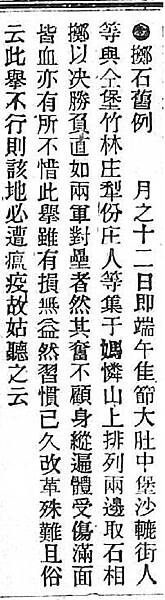 ●擲石舊例　　月之十二日即端午佳節大肚中堡沙轆街人
等與仝堡竹林庄犁份庄人等集于媽憐山上排列兩邊取石相
擲以决勝負直如兩軍對壘者然其奮不顧身縱遍體受傷滿面
皆血亦有所不惜此舉雖有損無益然習慣已久改革殊難且俗
云此舉不行則該地必遭瘟疫故姑聽之云